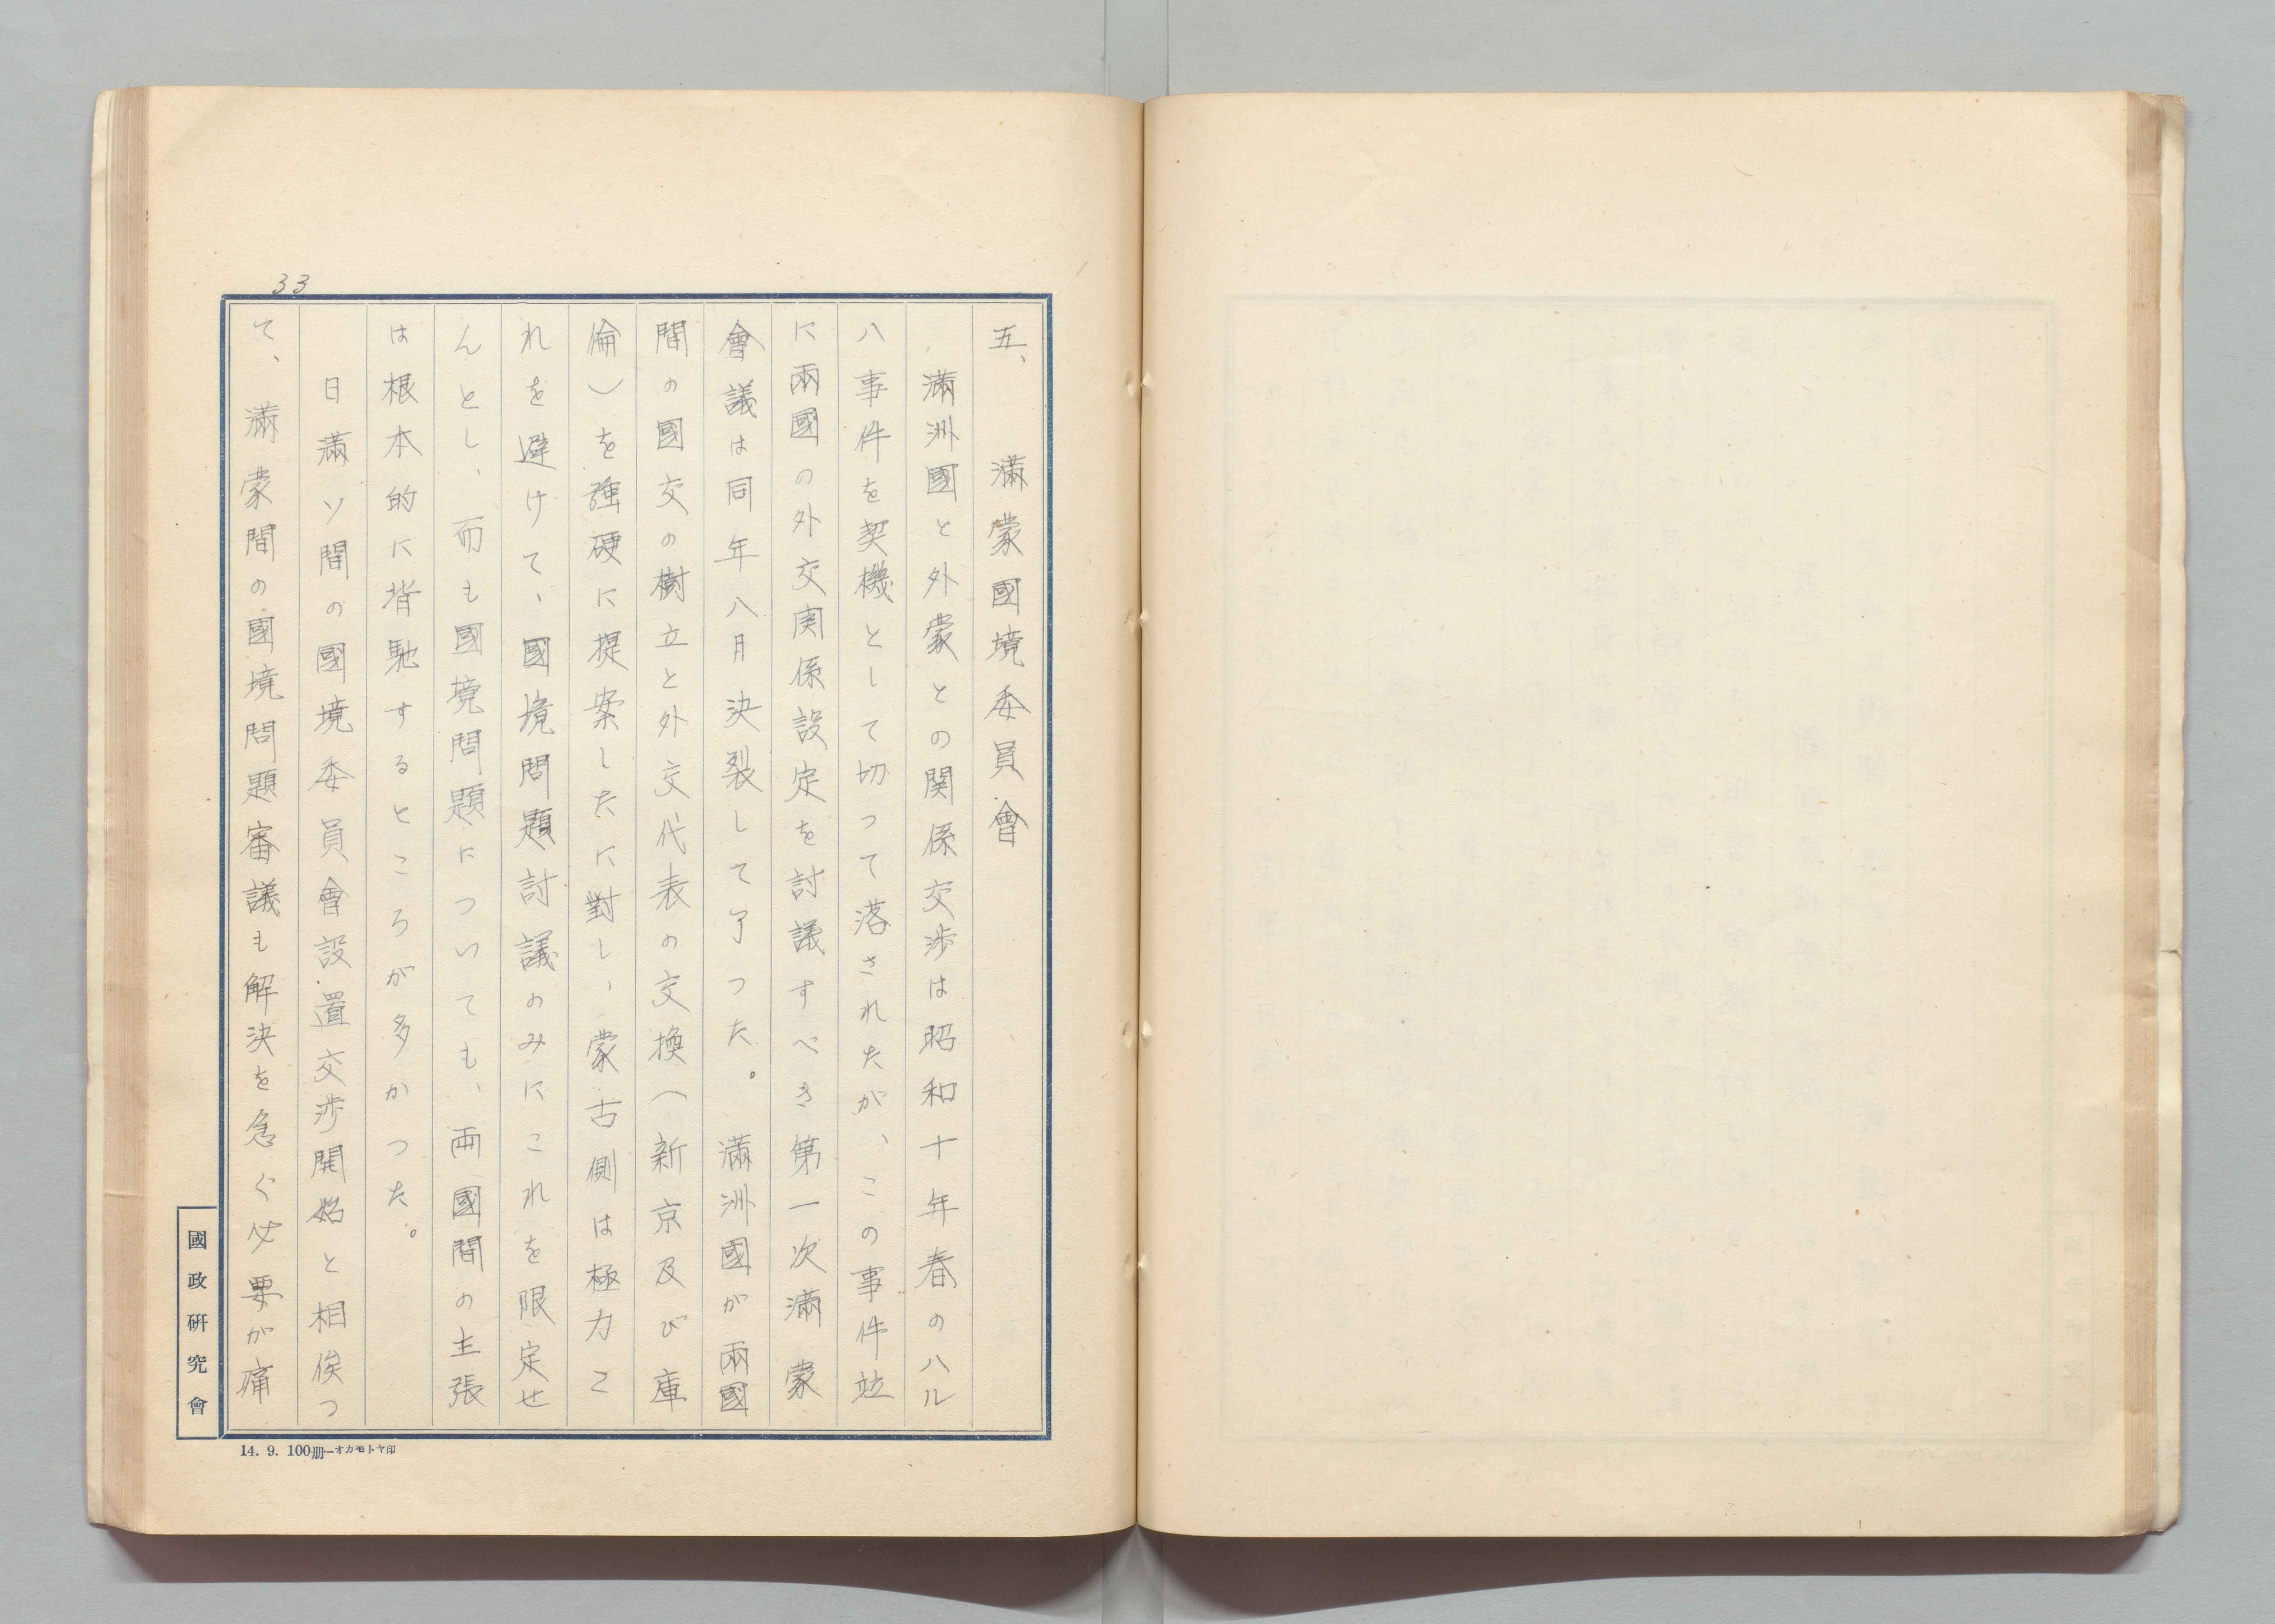 33
五、　滿蒙國境委員會
滿洲國と外蒙との関係交渉は昭和十年春のハル
ハ事件を契機として切って落されたが、この事件竝
に兩國の外交関係設定を討議すべき第一次滿蒙
會議は同年八月決裂して了つた。滿洲國が兩國
間の國交の樹立と外交代表の交換（新京及び庫
倫）を強硬に提案したに對し、蒙古側は極力こ
れを避けて、國境問題討議のみにこれを限定せ
んとし、而も國境問題についても、兩國間の主張
は根本的に背馳するところが多かつた。
日滿ソ間の國境委員會設置交渉開始と相俟つ
て、滿蒙間の國境問題審議も解決を急ぐ必要が痛
國政硏究會
14. 9. 100册—オカモトヤ印